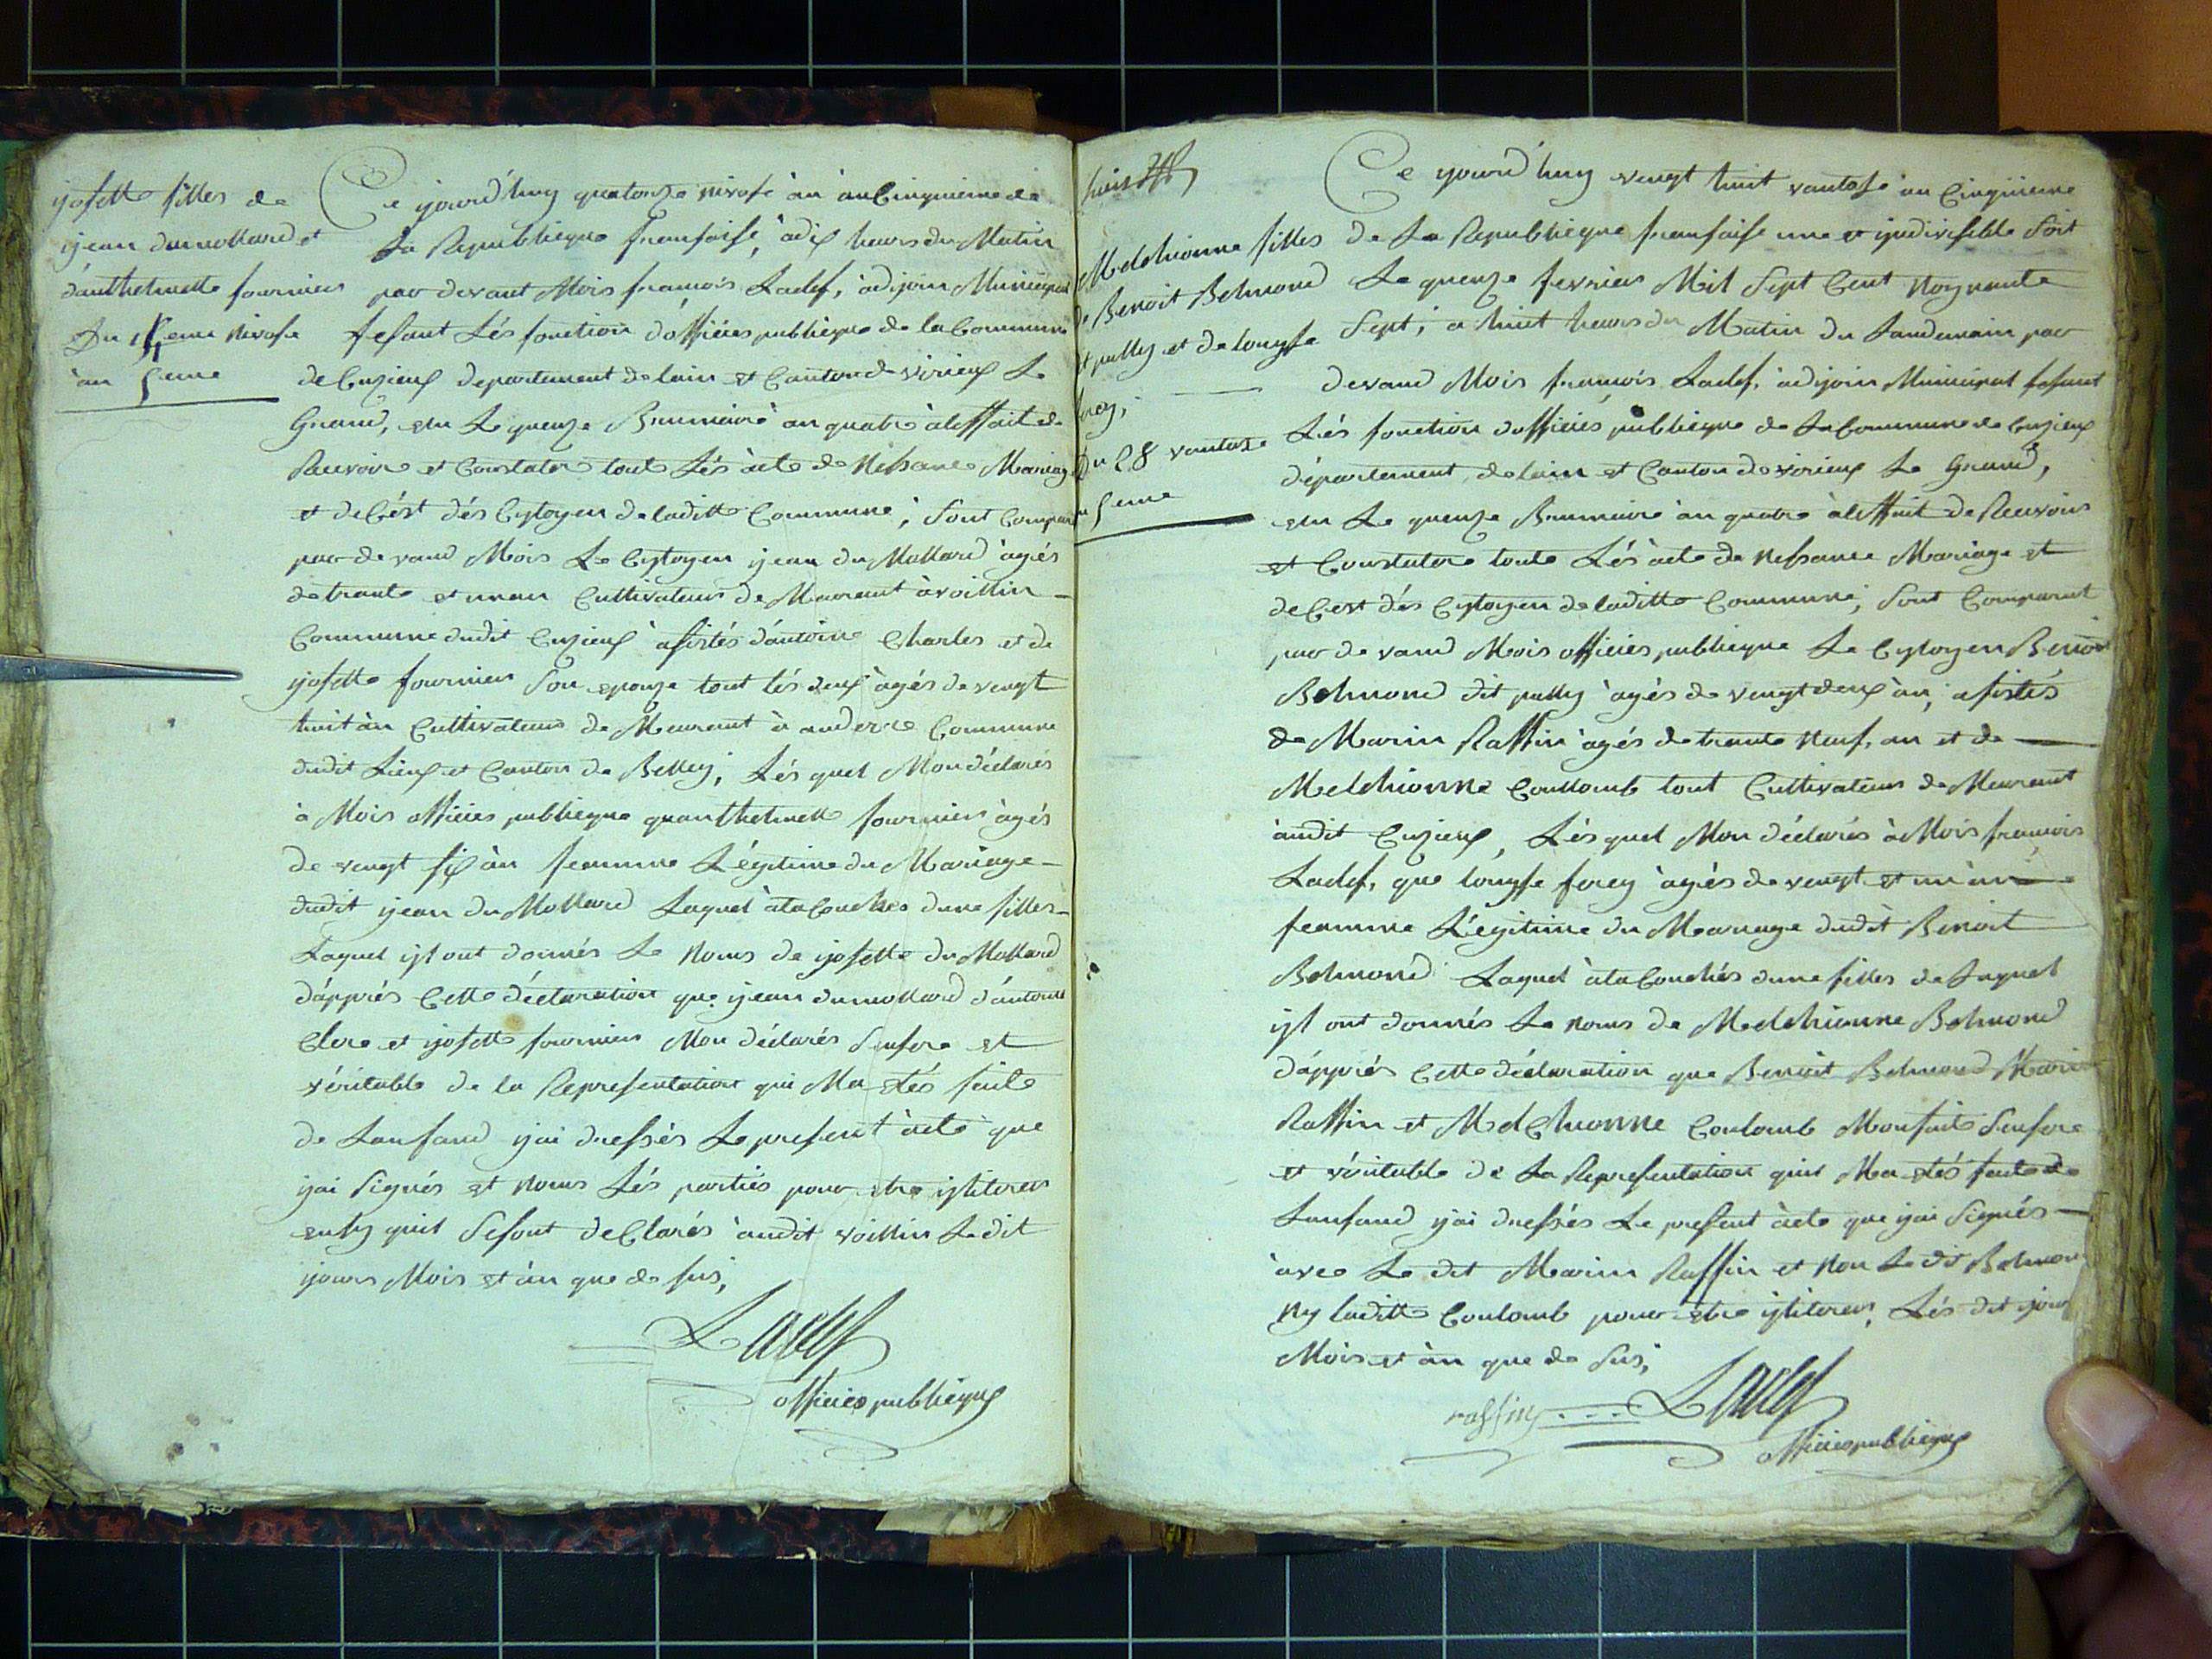 josette filles de
ijean dumollard et
d'anthelmette fournier
Du 14eme nivose
àn 5eme
Ce ijourd'huy quatorze nivose àn àn Cinquieme de
La Republieque franfaise, à dix heurs du Matin
par devant Mois francois Ladef, àdijoin Municipal
fesant Lés fonction d'officiés publieque de la Commune
de Cuzieux departement de lain et Canton de virieux Le
Grand, elu Le quenze Brumaire àn quatre à leffait de
Recevoire et Constatere toute Lés àcte de Nessance Mariage
et deCést dés Cytoyen de laditte Commune, Sont Comparut
par de vand Mois Le Cytoyen ijean du Mollard àgés
de trante et un an Cultivateur de Meurant à voillin
Commune dudit Cuzieux àsistés d'antoine Charles et de
ijosette fournier Son epouze tout lés deux àgés de vengt
huit àn Cultivateur de Meurant à anderre Commune
dudit Lieux et Canton de Belley, Lésquel Mon déclarés
à Mois officiés publieque quanthelmette fournier àgés
de vengt six àn feamme Légitime du Mariage
dudit ijean du Mollard Laquel àtaCouchés dune filles
Laquel ijl ont donnés Le Noms de ijosette du Mollard
dápprés Cette déclaration que ijean dumollard d'antoine
Clere et ijosette fournier Mon déclarés Senfere et
véritable de la Representation qui Ma etés faite
de Lanfand ijai dressés Le present àcte que
ijai Signés et Noms Lés partiés pour etre ijlliterer
enssy quil Sesont déClarés àudit voillin Ledit
ijours Mois et àn que de sus,
Ladef
officies publieque
Melchionne filles
de Benoit Belmond
dit pully et de Louyse
ferey,
Du 28 vantoze
àn 5eme
Ce yourd'huy vengt huit vantose àn Cinquieme
De La Republieque franfaise une et ijndivisible Soit
Le quenze fevrier Mil Sept Cent Noynante
Sept, à huit heurs du Matin du Landemain par
devand Mois francois Ladef, àdijoin Municipal fesant
Lés fonction dofficiés publieque de La Commune de Cuzieux
département de lain et Canton de virieux Le Grand,
elu Le quenze Brumaire àn quatre à leffait de Recevoire
et Constatere toute Lés àcte de Nessance Mariage et
deCest dés Cytoyen de laditte Commune, Sont Comparut
par de vand Mois officiés publieque Le Cytoyen Benoit
Belmond dit pully àgés de vengt deux àn, àsistés
de Marin Raffin àgés de trante Neuf, an et de
Melchionne Coullomb tout Cultivateur de Meurant
àudit Cuzieux, Lésquel Mon déclarés à Mois francois
Ladef, que Louyse ferey àgés de vengt et un àn
feamme Légitime du Mariage dudit Benoit
Belmond Laquel àtaCouchés dune filles de Laquel
ijl ont donnés Le noms de Melchionne Belmond
dápprés Cette déclaration que Benoit Belmond Marin
Raffin et Melchionne Coulomb Mon faite Senfere
et véritable de La Representation quil Ma etés faite de
Lanfand ijai dressés Le present àcte que ijai Signés
àvec Le dit Marin Raffin et Non Ledit Belmond
Ny laditte Coulomb pour etre ijlliterer, Lés dit ijour
Mois et àn que de Sus,
raffin Ladef
officiés publieque